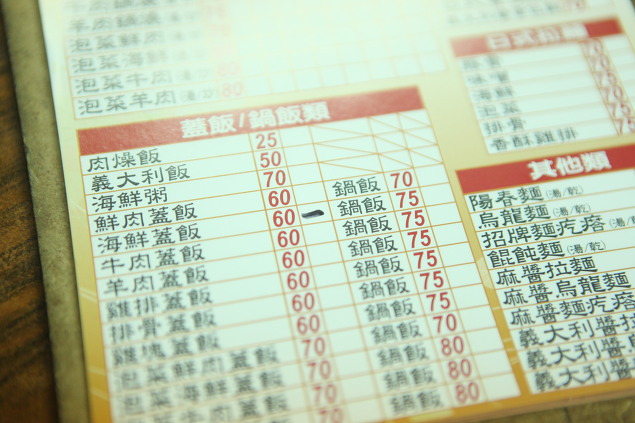 泡菜鮮肉
泡菜海鮮
泡菜牛肉
泡菜羊肉 80
蓋飯/鍋飯類
肉燥飯 25
義大利飯 50
海鮮粥 70
鮮肉蓋飯 60 鍋飯 70
海鮮蓋飯 60 鍋飯 75
牛肉蓋飯 60 鍋飯 75
羊肉蓋飯 60 鍋飯 75
雞排蓋飯 60 鍋飯 75
排骨蓋飯 60 鍋飯 75
雞塊蓋飯 60 鍋飯 70
泡菜鮮肉蓋飯 70 鍋飯 80
泡菜海鮮蓋飯 70 鍋飯 80
泡菜牛肉蓋飯 70
日式拉麵
味噌
海鮮
泡菜
排骨
香酥雞排
其他類
陽春麵(湯/乾)
烏龍麵(湯/乾)
招牌麵疙瘩(湯/乾)
餛飩麵(湯/乾)
麻醬拉麵
麻醬烏龍麵
麻醬麵疙瘩
義大利醬拉
義大利醬烏
義大利醬